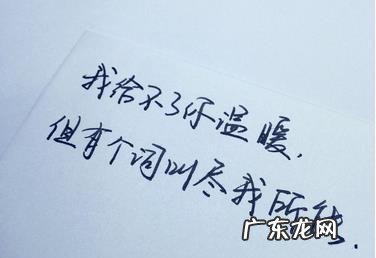 我给不了你温暖.
但有个词叫尽我所能.
广东龙网